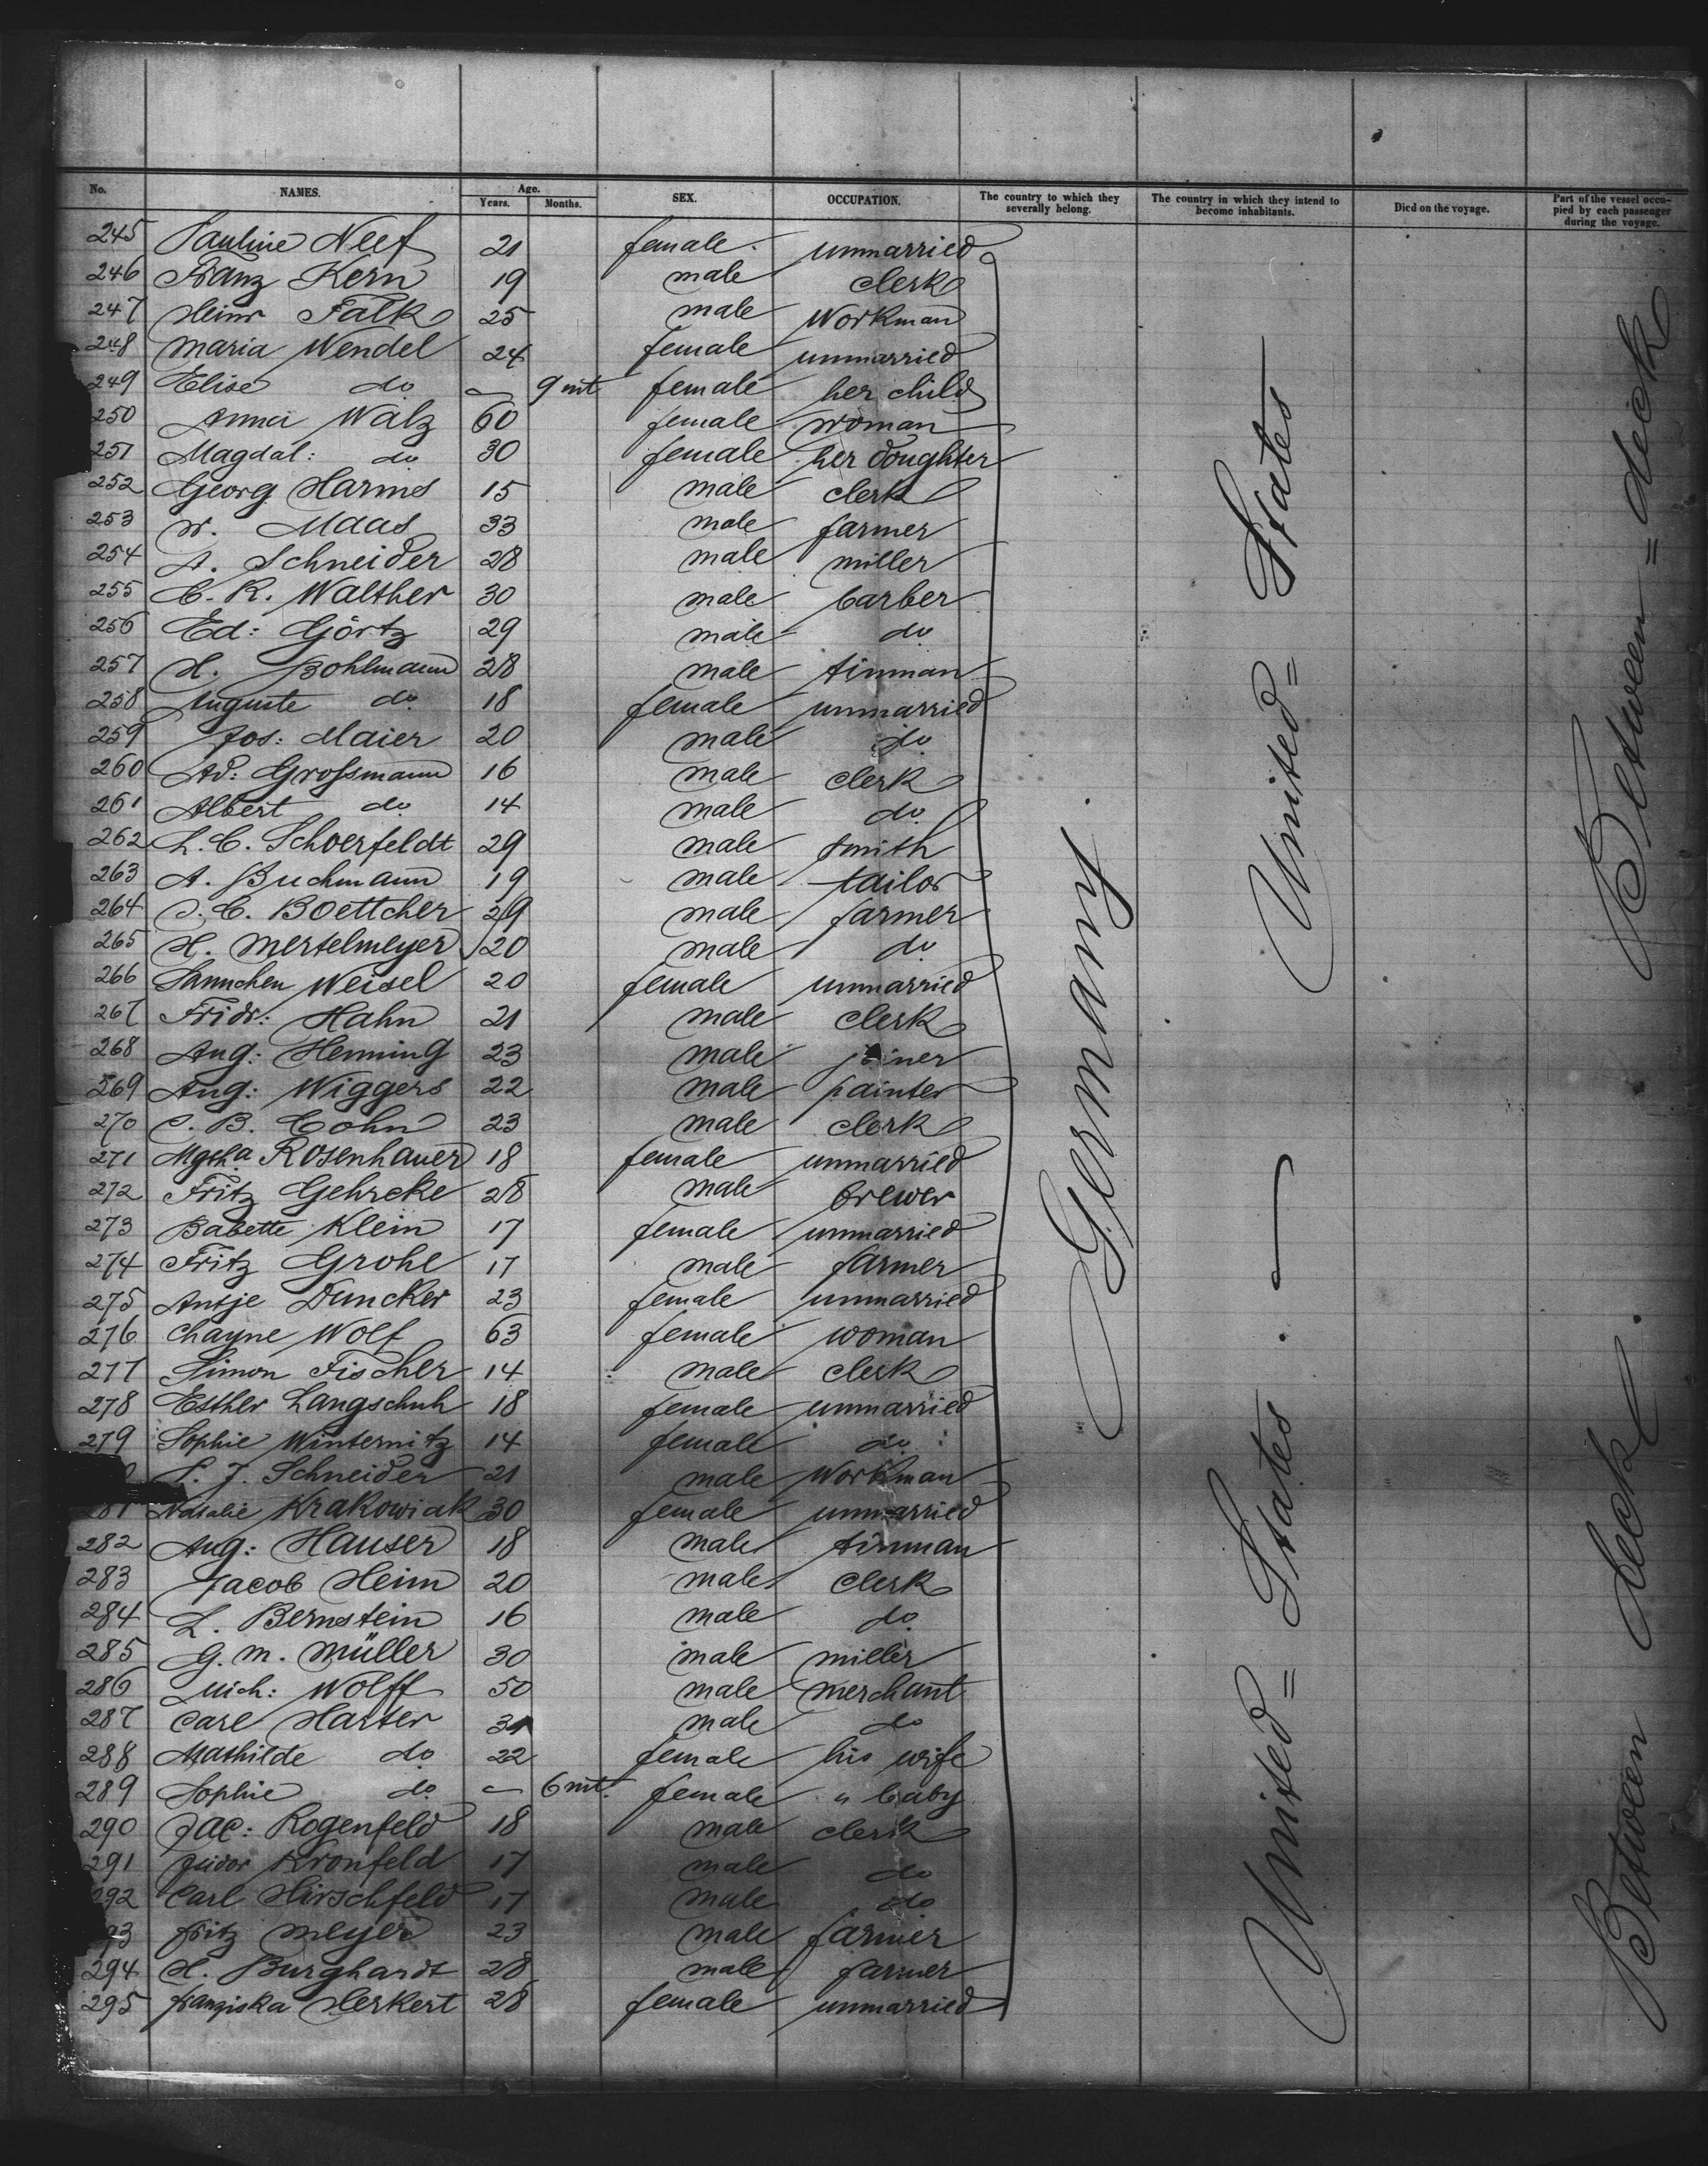 No. NAMES. Age. Years. Months. SEX. OCCUPATION. The country to which they severally belong. The country in which they intend to become inhabitants. Died on the voyage. Part of the vessel occupied by each passenger during the voyage.
245 Pauline Neef 21 female unmarried
246 Franz Kern 19 male clerk
247 Heinr Falk 25 male Workman
248 Maria Wendel 24 female unmarried
249 Elise do — 9 mt female her child
250 Anna Walz 60 female woman
251 Magdal: do 30 female her doughter
252 Georg Harms 15 male clerk
253 W. Maas 33 male farmer
254 A. Schneider 28 male miller
255 C. R. Walther 30 male barber
256 Ed: Görtz 29 male do
257 H. Bohlmann 28 male tinman
258 Auguste do 18 female unmarried
259 Jos: Maier 20 male do
260 Ad: Großmann 16 male clerk
261 Albert do 14 male do
262 L. C. Schoerfeldt 29 male smith
263 A. Buchmann 19 male tailor
264 C. Boettcher 29 male farmer
265 H. Mertelmeyer 20 male do
266 Hannchen Weisel 20 female unmarried
267 Fridr: Hahn 21 male clerk
268 Aug: Henning 23 male joiner
269 Aug: Wiggers 22 male painter
270 B. Cohn 23 male clerk
271 Rosenhauer 18 female unmarried
272 Fritz Gehrcke 28 male brewer
273 Babette Klein 17 female unmarried
274 Fritz Grohe 17 male farmer
275 Antje Duncker 23 female unmarried
276 Chayne Wolf 63 female woman
277 Simon Fischer 14 male clerk
278 Esther Langschuh 18 female unmarried
279 Sophie Winternitz 14 female do
S. J. Schneider 21 male Workman
281 Natalie Krakowiak 30 female unmarried
282 Aug: Hauser 18 male tinman
283 Jacob Heim 20 male clerk
284 L. Bernstein 16 male do
285 G. M. Müller 30 male miller
286 Mich: Wolff 50 male merchant
287 Carl Harter 31 male do
288 Mathilde do 22 female his wife
289 Sophie do — 6 mt. female " baby
290 Jac: Rogenfeld 18 male clerk
291 Isidor Kronfeld 17 male do
292 Carl Hirschfeld 17 male do
93 Fritz Meyer 23 male farmer
294 H. Burghardt 28 male farmer
295 Franziska Herkert 28 female unmarried
Germany
United = States — United = States
Between deck Between = deck